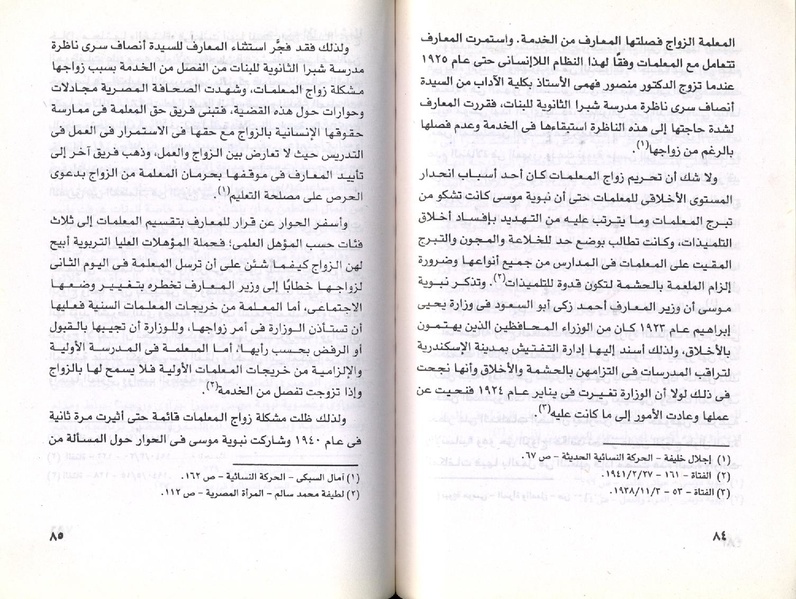 المعلمة الزواج فصلتها المعارف من الخدمة. واستمرت المعارف
تتعامل مع المعلمات وفقًا لهذا النظام اللاإنسانى حتى عام ١٩٢٥
عندما تزوج الدكتور منصور فهمى الأستاذ بكلية الآداب من السيدة
أنصاف سرى ناظرة مدرسة شبرا الثانوية للبنات، فقررت المعارف
لشدة حاجتها إلى هذه الناظرة استبقاءها فى الخدمة وعدم فصلها
بالرغم من زواجها(١).
ولا شك أن تحريم زواج المعلمات كان أحد أسباب انحدار
المستوى الأخلاقى للمعلمات حتى أن نبوية موسى كانت تشكو من
تبرج المعلمات وما يترتب عليه من التهديد بإفساد أخلاق
التلميذات، وكانت تطالب بوضع حد للخلاعة والمجون والتبرج
المقيت على المعلمات فى المدارس من جميع أنواعها وضرورة
إلزام الملعمة بالحشمة لتكون قدوة للتلميذات(٢). وتذكر نبوية
موسى أن وزير المعارف أحمد زكى أبو السعود فى وزارة يحيى
إبراهيم عام ١٩٢٣ كان من الوزراء المحافظين الذين يهتمون
بالأخلاق، ولذلك أسند إليها إدارة التفتيش بمدينة الإسكندرية
لتراقب المدرسات فى التزامهن بالحشمة والأخلاق وأنها نجحت
فى ذلك لولا أن الوزارة تغيرت فى يناير عام ١٩٢٤ فنحيت عن
عملها وعادت الأمور إلى ما كانت عليه(٣)
(١) إجلال خليفة - الحركة النسائية الحديثة - ص ٦٧.
(٢) الفتاة - ١٦١ - ١٩٤١/٢/٢٧.
(٣) الفتاة - ٥٣ - ١٩٣٨/١١/٣.
٨٤
ولذلك فقد فجَّر استثناء المعارف للسيدة أنصاف سرى ناظرة
مدرسة شبرا الثانوية للبنات من الفصل من الخدمة بسبب زواجها
مشكلة زواج المعلمات، وشهدت الصحافة المصرية مجادلات
وحوارات حول هذه القضية، فتبنى فريق حق المعلمة فى ممارسة
حقوقها الإنسانية بالزواج مع حقها فى الاستمرار فى العمل فى
التدريس حيث لا تعارض بين الزواج والعمل، وذهب فريق آخر إلى
تأييد المعارف فى موقفها بحرمان المعلمة من الزواج بدعوى
الحرص على مصلحة التعليم(١).
وأسفر الحوار عن قرار للمعارف بتقسيم المعلمات إلى ثلاث
فئات حسب المؤهل العلمى؛ فحملة المؤهلات العليا التربوية أبيح
لهن الزواج كيفما شئن على أن ترسل المعلمة فى اليوم الثانى
لزواجها خطابًا إلى وزير المعارف تخطره بتغيير وضعها
الاجتماعى، أما المعلمة من خريجات المعلمات السنية فعليها
أن تستأذن الوزارة فى أمر زواجها، وللوزارة أن تجيبها بالقبول
أو الرفض بحسب رأيها، أما المعلمة فى المدرسة الأولية
والإلزامية من خريجات المعلمات الأولية فلا يسمح لها بالزواج
وإذا تزوجت تفصل من الخدمة(٢).
ولذلك ظلت مشكلة زواج المعلمات قائمة حتى أثيرت مرة ثانية
فى عام ١٩٤٠ وشاركت نبوية موسى فى الحوار حول المسألة من
(١) آمال السبكى - الحركة النسائية - ص ١٦٢.
(٢) لطيفة محمد سالم - المرأة المصرية - ص ١١٢.
٨٥